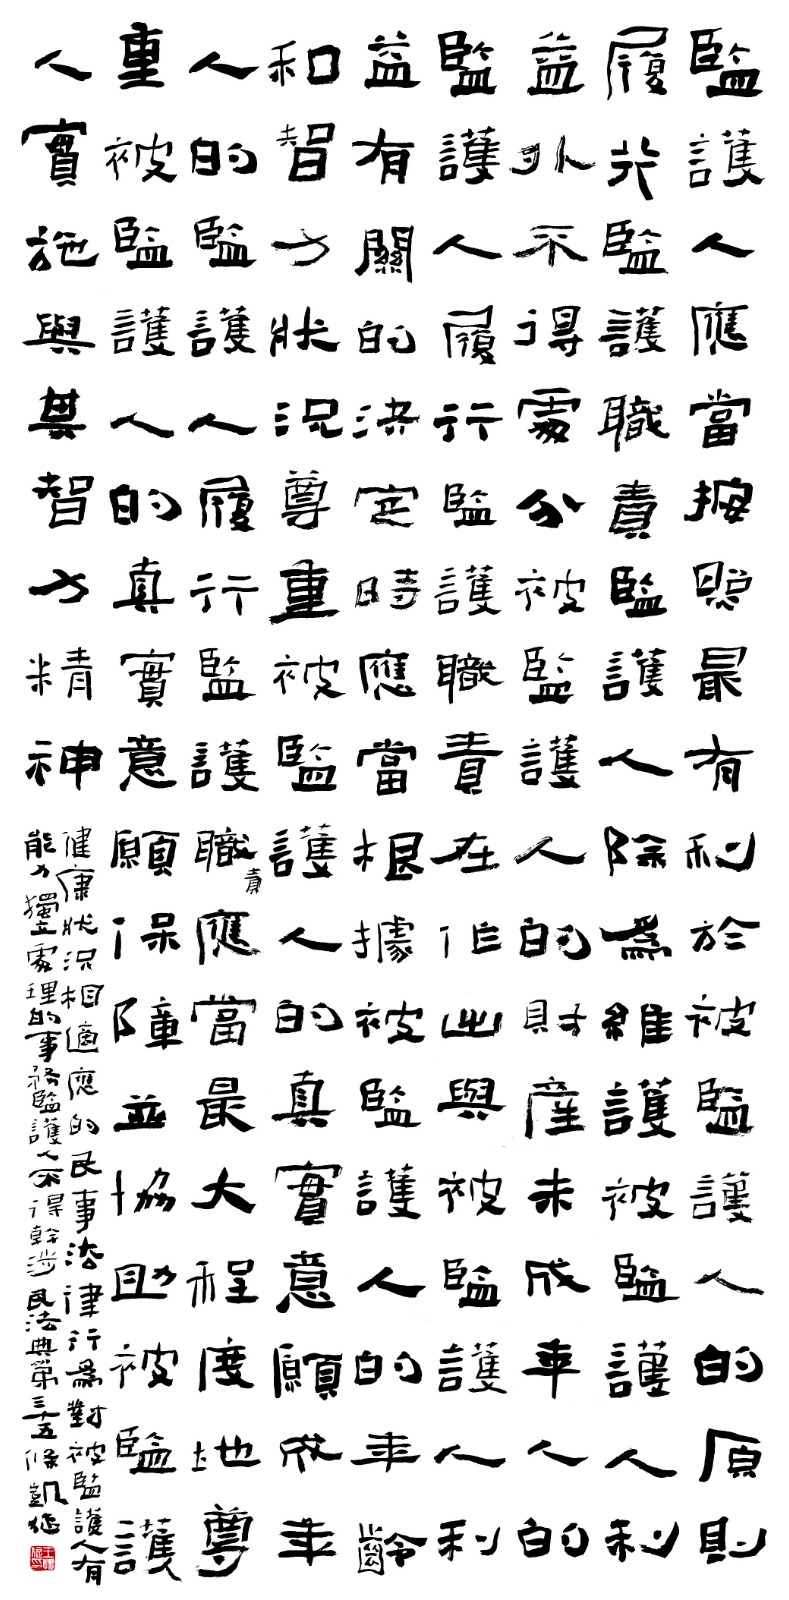 監護人應當按照最有利於被監護人的原則
履行監護職責監護人除為維護被監護人利
益外不得處分被監護人的財產未成年人的
監護人履行監護職責在作出與被監護人利
益有關的決定時應當根據被監護人的年齡
和智力狀況尊重被監護人的真實意願成年
人的監護人履行監護職責應當最大程度地尊
重被監護人的真實意願保障並協助被監護
人實施與其智力精神
健康狀況相適應的民事法律行為對被監護人有
能力獨立處理的事務監護人不得幹涉民法典第三十五條凱